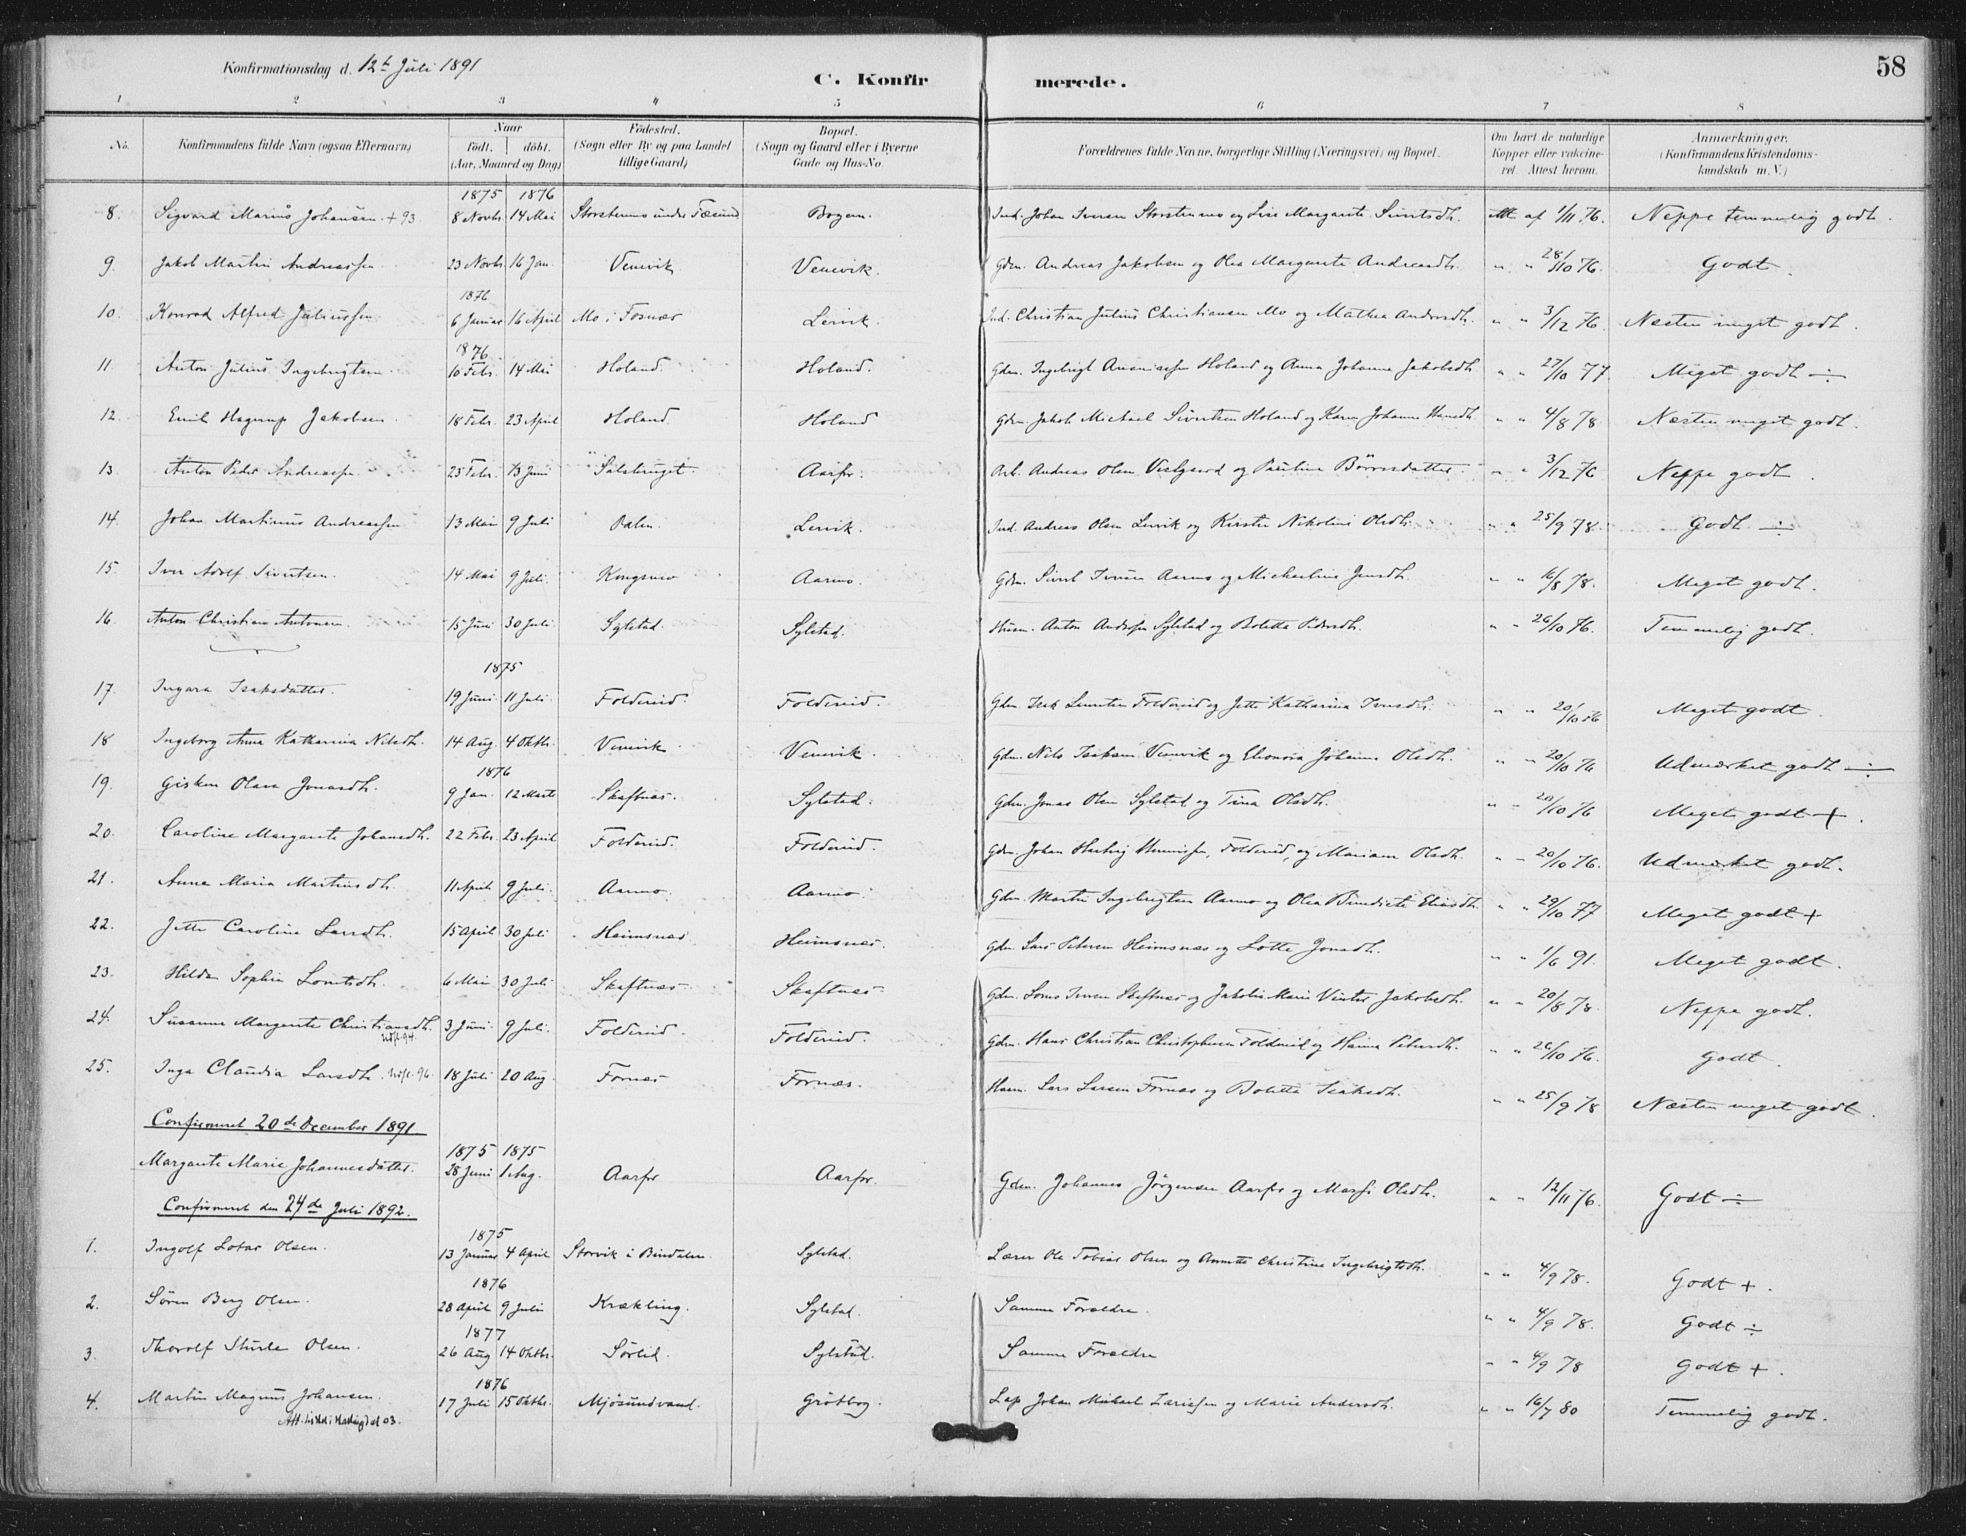 Konfirmationsdag d. 12te Juli 1891
C. Konfirmerede.
58
1 2 3 4 5 6 7 8
No. | Konfirmandens fulde Navn (ogsaa Efternavn) | Naar født. døbt. (Aar, Maaned og Dag) | Fødested. (Sogn eller By og paa Landet tillige Gaard) | Bopæl. (Sogn og Gaard eller i Byerne Gade og Hus-No. | Forældrenes fulde Navne, borgerlige Stilling (Næringsvei) og Bopæl. | Om havt de naturlige Kopper eller vakcineret. Attest herom. | Anmærkninger. (Konfirmandens Kristendomskundskab m. V.)
1875 1876
8. Sigvard Marius Johansen + 93 | 8 Novbr. | 14 Mai | under | Bogen. | Ind. Johan Iversen og Lise Margrete Sivertsdtr. | Att. af 1/11 76. | Neppe temmelig godt.
9. Jakob Martin Andreassen | 23 Novbr. | 16 Jan. | Vennvik | Vennvik. | Gdm. Andreas Jakobsen og Olea Margrete Andreasdtr. | " " 28/10 76. | Godt.
1876
10. Konrad Alfred Juliussen | 6 Januar | 16 April | Mo i Fosnæs | Lervik. | Ind. Christian Julius Christiansen Mo og Mathea Andersdtr. | " " 3/12 76. | Næsten meget godt.
1876
11. Anton Julius Ingebrigtsen | 10 Febr. | 14 Mai | Holand. | Holand. | Gdm. Ingebrigt Ananiassen Holand og Anna Johanna Jakobsdtr. | " " 27/10 77 | Meget godt ÷
12. Emil Hagerup Jakobsen | 18 Febr. | 23 April | Holand. | Holand | Gdm. Jakob Michael Sivertsen Holand og Karen Johanna Hansdtr. | " " 4/8 78 | Næsten meget godt.
13. Anton Peder Andreassen | 25 Febr. | 13 Juni | Salsbruget. | Aarfor. | Arb. Andreas Olsen Vestgaard og Pauline Børresdatter. | " " 3/12 76 | Neppe godt.
14. Johan Martinus Andreassen | 13 Mai | 9 Juli | Dalen. | Lervik. | Ind. Andreas Olsen Lervik og Kirsten Nikoline Olsdtr. | " " 25/9 78. | Godt ÷
15. Iver Adolf Sivertsen. | 14 Mai | 9 Juli. | Kongsmo | Aarmo. | Gdm. Sivert Iversen Aarmo og Michaeline Jensdtr. | " " 16/8 78. | Meget godt.
16. Anton Christian Antonsen. | 15 Juni | 30 Juli. | Sylstad. | Sylstad. | Husm. Anton Andersen Sylstad og Boletta Pedersdtr. | " " 26/10 76. | Temmelig godt.
1875
17. Ingara Isaksdatter. | 19 Juni. | 11 Juli. | Foldereid. | Foldereid. | Gdm. Isak Foldereid og Jette Katharina Iversdtr. | " " 20/10 76 | Meget godt.
18 Ingeborg Anna Katharina Nilsdtr. | 14 Aug. | 4 Oktbr. | Vennvik | Vennvik. | Gdm. Nils Isaksen Vennvik og Elenora Johanna Olsdtr. | " " 20/10 76 | Udmærket godt ÷
1876
19. Gisken Olava Jonasdtr. | 9 Jan. | 12 Marts | Skaftnæs. | Sylstad. | Gdm. Jonas Olsen Sylstad og Tina Olsdtr. | " " 20/10 76 | Meget godt +.
20. Caroline Margrete Johansdtr. | 22 Febr. | 23 April | Foldereid. | Foldereid. | Gdm. Johan Hartvig Foldereid, og Mariane Olsdtr. | " " 20/10 76. | Udmærket godt.
21. Anna Maria Martinsdtr. | 11 April | 9 Juli. | Aarmo. | Aarmo. | Gdm. Martin Ingebrigtsen Aarmo og Olea Benedicte Eliasdtr. | " " 29/10 77 | Meget godt +
22. Jette Caroline Larsdtr. | 15 April | 30 Juli | Heimsnæs | Heimsnæs. | Gdm. Lars Petersen Heimsnæs og Lotte Jonasdtr. | " " 1/6 91. | Meget godt.
23. Hilda Sophie | 6 Mai | 30 Juli | Skaftnæs | Skaftnæs | Gdm. Iversen Skaftnæs og Jakobine Marie Jakobsdtr. | " " 20/8 78. | Neppe godt.
24. Susanna Margrete Christiansdtr. 94. | 3 Juni. | 9 Juli. | Foldereid. | Foldereid. | Gdm. Hans Christian Christophersen Foldereid og Hanna Petersdtr. | " " 26/10 76. | Godt.
25. Inga Claudia Larsdtr. 96. | 18 Juli | 20 Aug. | Fornæs | Fornæs. | Husm. Lars Larsen Fornæs og Boletta Isaksdtr. | " " 25/9 78 | Næsten meget godt.
Confirmeret 20de December 1891
1875 1875
Margrete Marie Johannesdatter. | 28 Juni | 1 Aug. | Aarfor | Aarfor. | Gdm. Johannes Jørgensen Aarfor og Marsi Olsdtr. | " " 12/11 76. | Godt ÷
Confirmeret den 24de Juli 1892.
1875
1. Ingolf Lotar Olsen. | 13 Januar | 4 April | Storvik i Bindalen. | Sylstad. | Lærer Ole Tobias Olsen og Annette Christine Ingebrigtsdtr. | " " 4/9 78. | Godt +.
1876
2. Søren Berg Olsen. | 28 April | 9 Juli | Krækling. | Sylstad. | Samme Forældre. | " " 4/9 78. | Godt ÷
1877
3. Thorolf Sturla Olsen. | 26 Aug | 14 Oktbr. | Sørlid. | Sylstad. | Samme Forældre | " " 4/9 78 | Godt +
1876
4. Martin Magnus Johansen. | 17 Juli | 15 Oktbr. | Mjösundvand. | Grøtbog. | Lap Johan Mikael Zarissen og Marie Andersdtr. | " " 16/7 80 | Temmelig godt.
03.